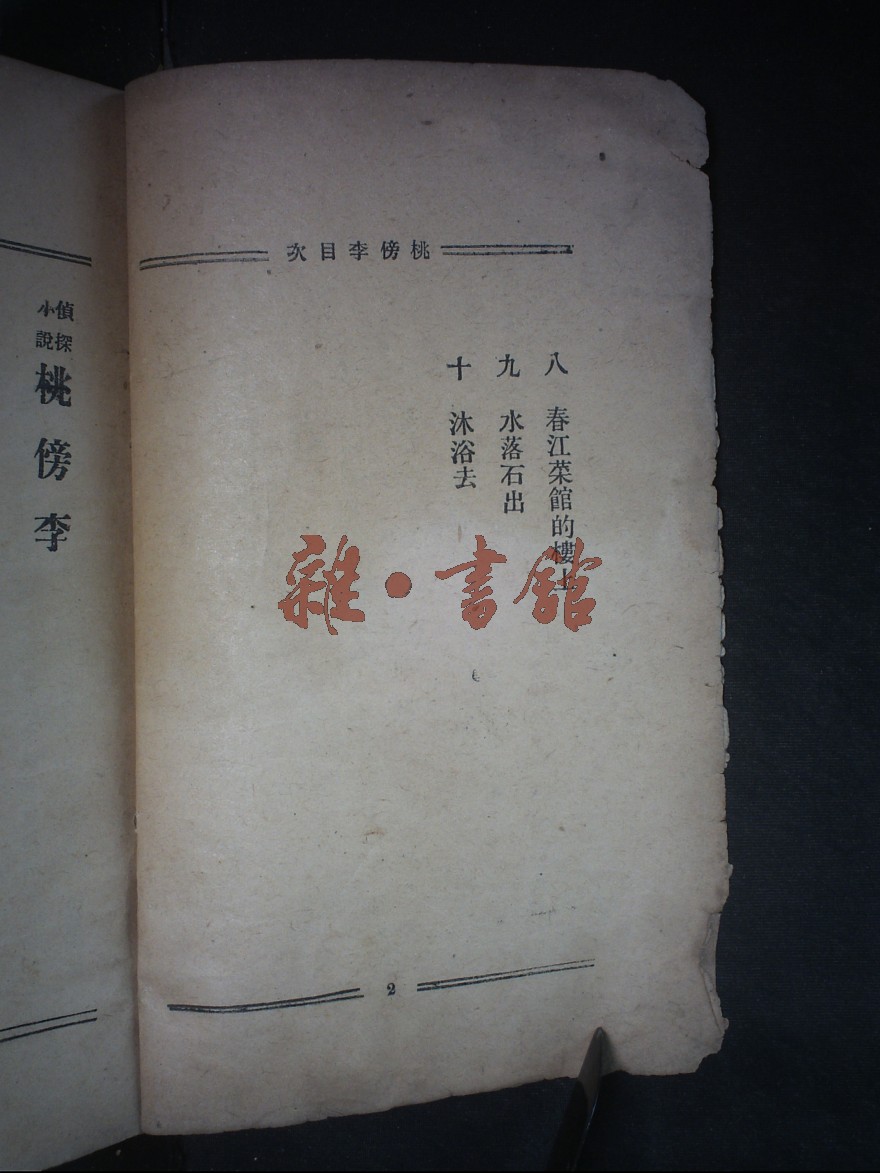 桃傍李目次
八　春江菜館的樓上
九　水落石出
十　沐浴去
雜・書館
2
偵探小說
桃傍李